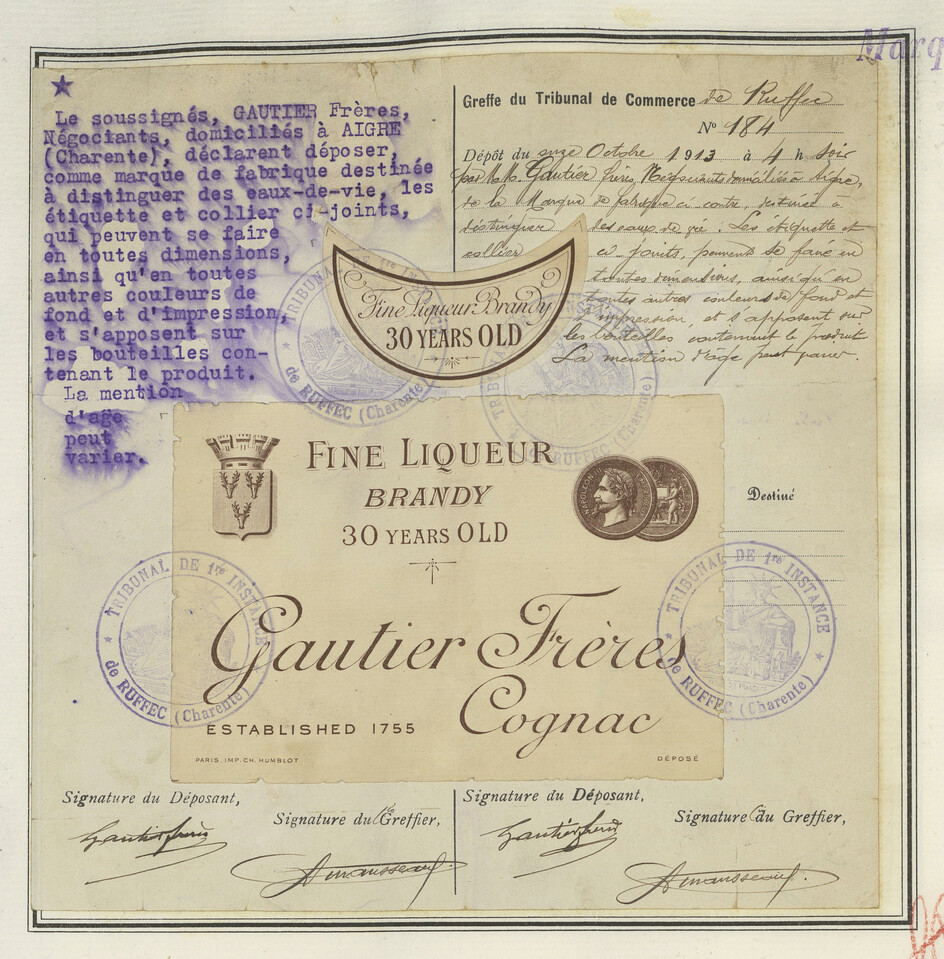 Marq
Le soussignés, GAUTIER Frères,
Négociants, domiciliés à AIGRE
(Charente), déclarent déposer,
comme marque de fabrique destinée
à distinguer des eaux-de-vie, les
étiquette et collier ci-joints,
qui peuvent se faire
en toutes dimensions,
ainsi qu'en toutes
autres couleurs de
fond et d'impression,
et s'apposent sur
les bouteilles con-
tenant le produit.
La mention
d'age
peut
varier.
Greffe du Tribunal de Commerce de Ruffec
N° 184
Dépôt du onze Octobre 1913 à 4 h soir
par M.M. Gautier frères, Négociants domiciliés à Aigre,
de la Marque de fabrique ci contre, destinée à
distinguer des eaux de vie. Les étiquette et
collier ci-joints, peuvent se faire en
toutes dimensions, ainsi qu'en
toutes autres couleurs de fond et
impression, et s'apposent sur
les bouteilles contenant le produit
La mention d'âge peut varier.
Fine Liqueur Brandy
30 YEARS OLD
TRIBUNAL DE 1re INSTANCE
de RUFFEC (Charente)
TRIBUNAL DE 1re INSTANCE
de RUFFEC (Charente)
FINE LIQUEUR
BRANDY
30 YEARS OLD
NAPOLEON
Destiné
TRIBUNAL DE 1re INSTANCE
de RUFFEC (Charente)
TRIBUNAL DE 1re INSTANCE
de RUFFEC (Charente)
Gautier Frères
Cognac
ESTABLISHED 1755
PARIS. IMP. CH. HUMBLOT
DÉPOSÉ
Signature du Déposant,
Signature du Greffier,
Gautier frères
Signature du Déposant,
Signature du Greffier,
Gautier frères